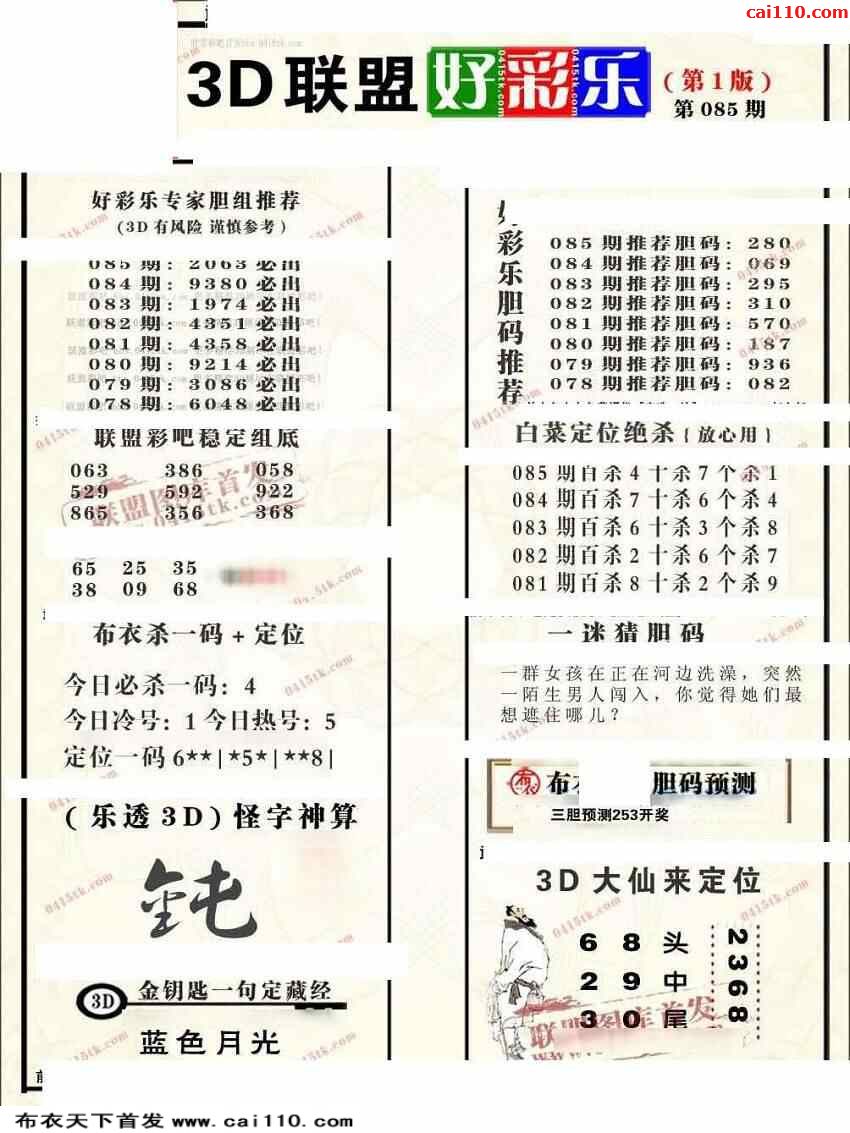 cai110.com
3D联盟好彩乐
(第1版)
第085期
好彩乐专家胆组推荐
(3D有风险 谨慎参考)
085期: 2063必出
084期: 9380必出
083期: 1974必出
082期: 4351必出
081期: 4358必出
080期: 9214必出
079期: 3086必出
078期: 6048必出
联盟彩吧稳定组底
063 386 058
529 592 922
865 356 368
65 25 35
38 09 68
布衣杀一码+定位
今日必杀一码: 4
今日冷号: 1 今日热号: 5
定位一码 6**|*5*|**8|
(乐透3D)怪字神算
钝
3D 金钥匙一句定藏经
蓝色月光
好彩乐胆码推荐
085期推荐胆码: 280
084期推荐胆码: 069
083期推荐胆码: 295
082期推荐胆码: 310
081期推荐胆码: 570
080期推荐胆码: 187
079期推荐胆码: 936
078期推荐胆码: 082
白菜定位绝杀{放心用}
085期百杀4十杀7个杀1
084期百杀7十杀6个杀4
083期百杀6十杀3个杀8
082期百杀2十杀6个杀7
081期百杀8十杀2个杀9
一迷猜胆码
一群女孩在正在河边洗澡，突然
一陌生男人闯入，你觉得她们最
想遮住哪儿？
布衣 布 胆码预测
三胆预测253开奖
3D大仙来定位
6 8 头
2 9 中
3 0 尾
2368
联盟图库首发
0415tk.com
布衣天下首发 www.cai110.com